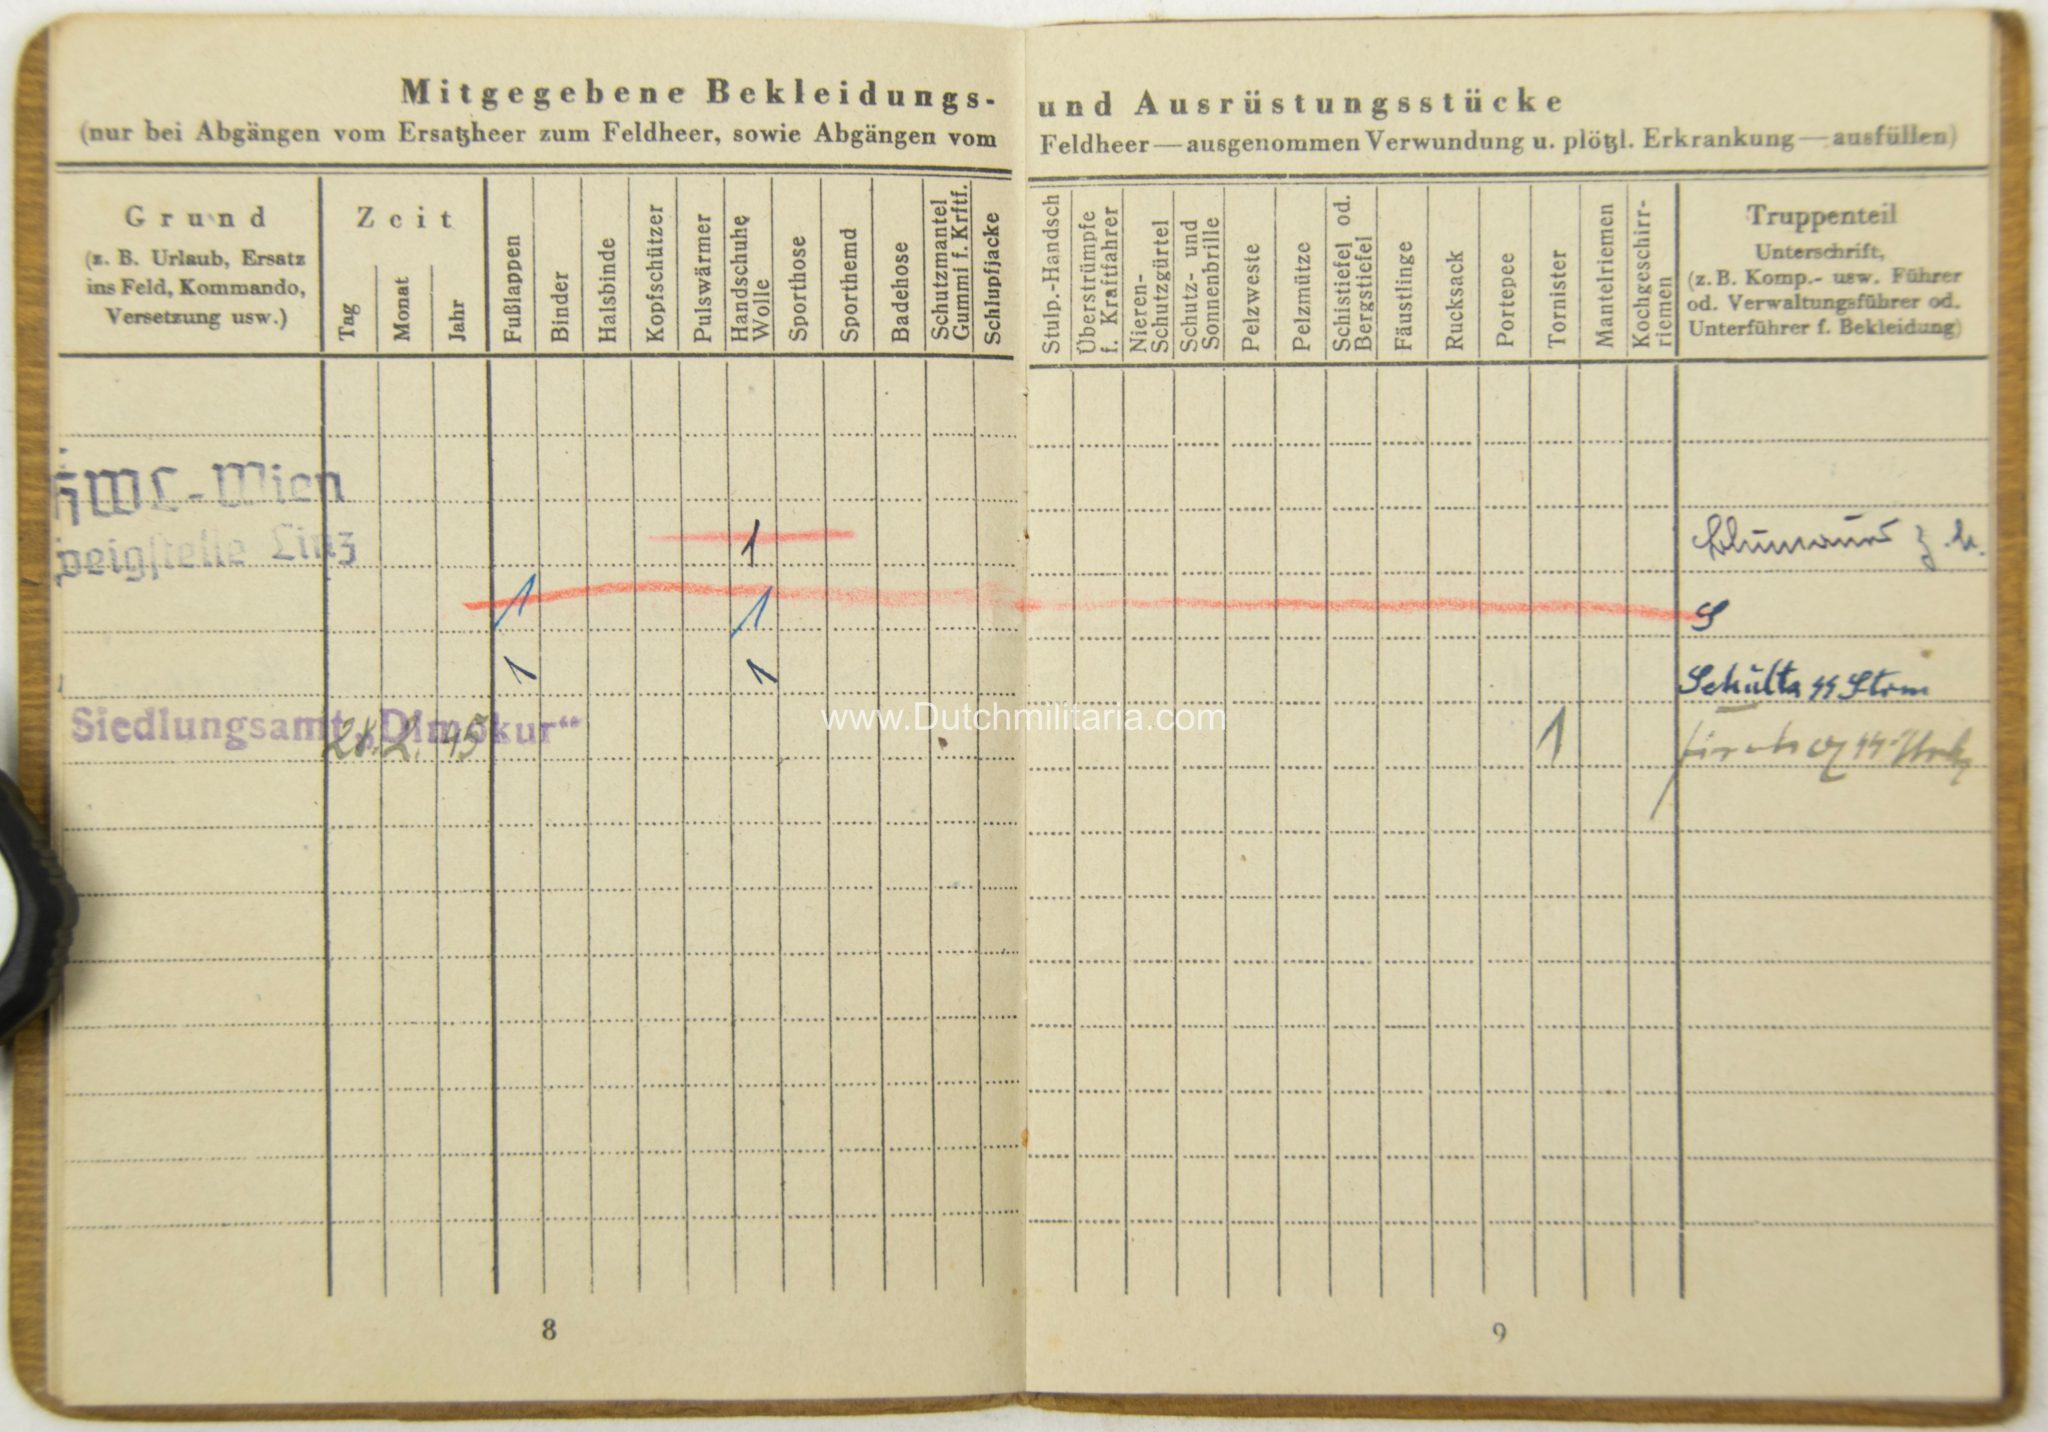 Mitgegebene Bekleidungs-
(nur bei Abgängen vom Ersatzheer zum Feldheer, sowie Abgängen vom
Grund
(z. B. Urlaub, Ersatz
ins Feld, Kommando,
Versetzung usw.)
Zeit
Tag
Monat
Jahr
Fußlappen
Binder
Halsbinde
Kopfschützer
Pulswärmer
Handschuhe
Wolle
Sporthose
Sporthemd
Badehose
Schutzmantel
Gummi f. Krftf.
Schlupfjacke
-Wien
Linz
1
1 1
1 1
Siedlungsamt „Dimokur“
28. 2. 45
8
und Ausrüstungsstücke
Feldheer — ausgenommen Verwundung u. plötzl. Erkrankung — ausfüllen)
Stulp.-Handsch
Überstrümpfe
f. Kraftfahrer
Nieren-
Schutzgürtel
Schutz- und
Sonnenbrille
Pelzweste
Pelzmütze
Schistiefel od.
Bergstiefel
Fäustlinge
Rucksack
Portepee
Tornister
Mantelriemen
Kochgeschirr-
riemen
Truppenteil
Unterschrift,
(z. B. Komp.- usw. Führer
od. Verwaltungsführer od.
Unterführer f. Bekleidung)
S
Schulta Strm
1
9
www.Dutchmilitaria.com